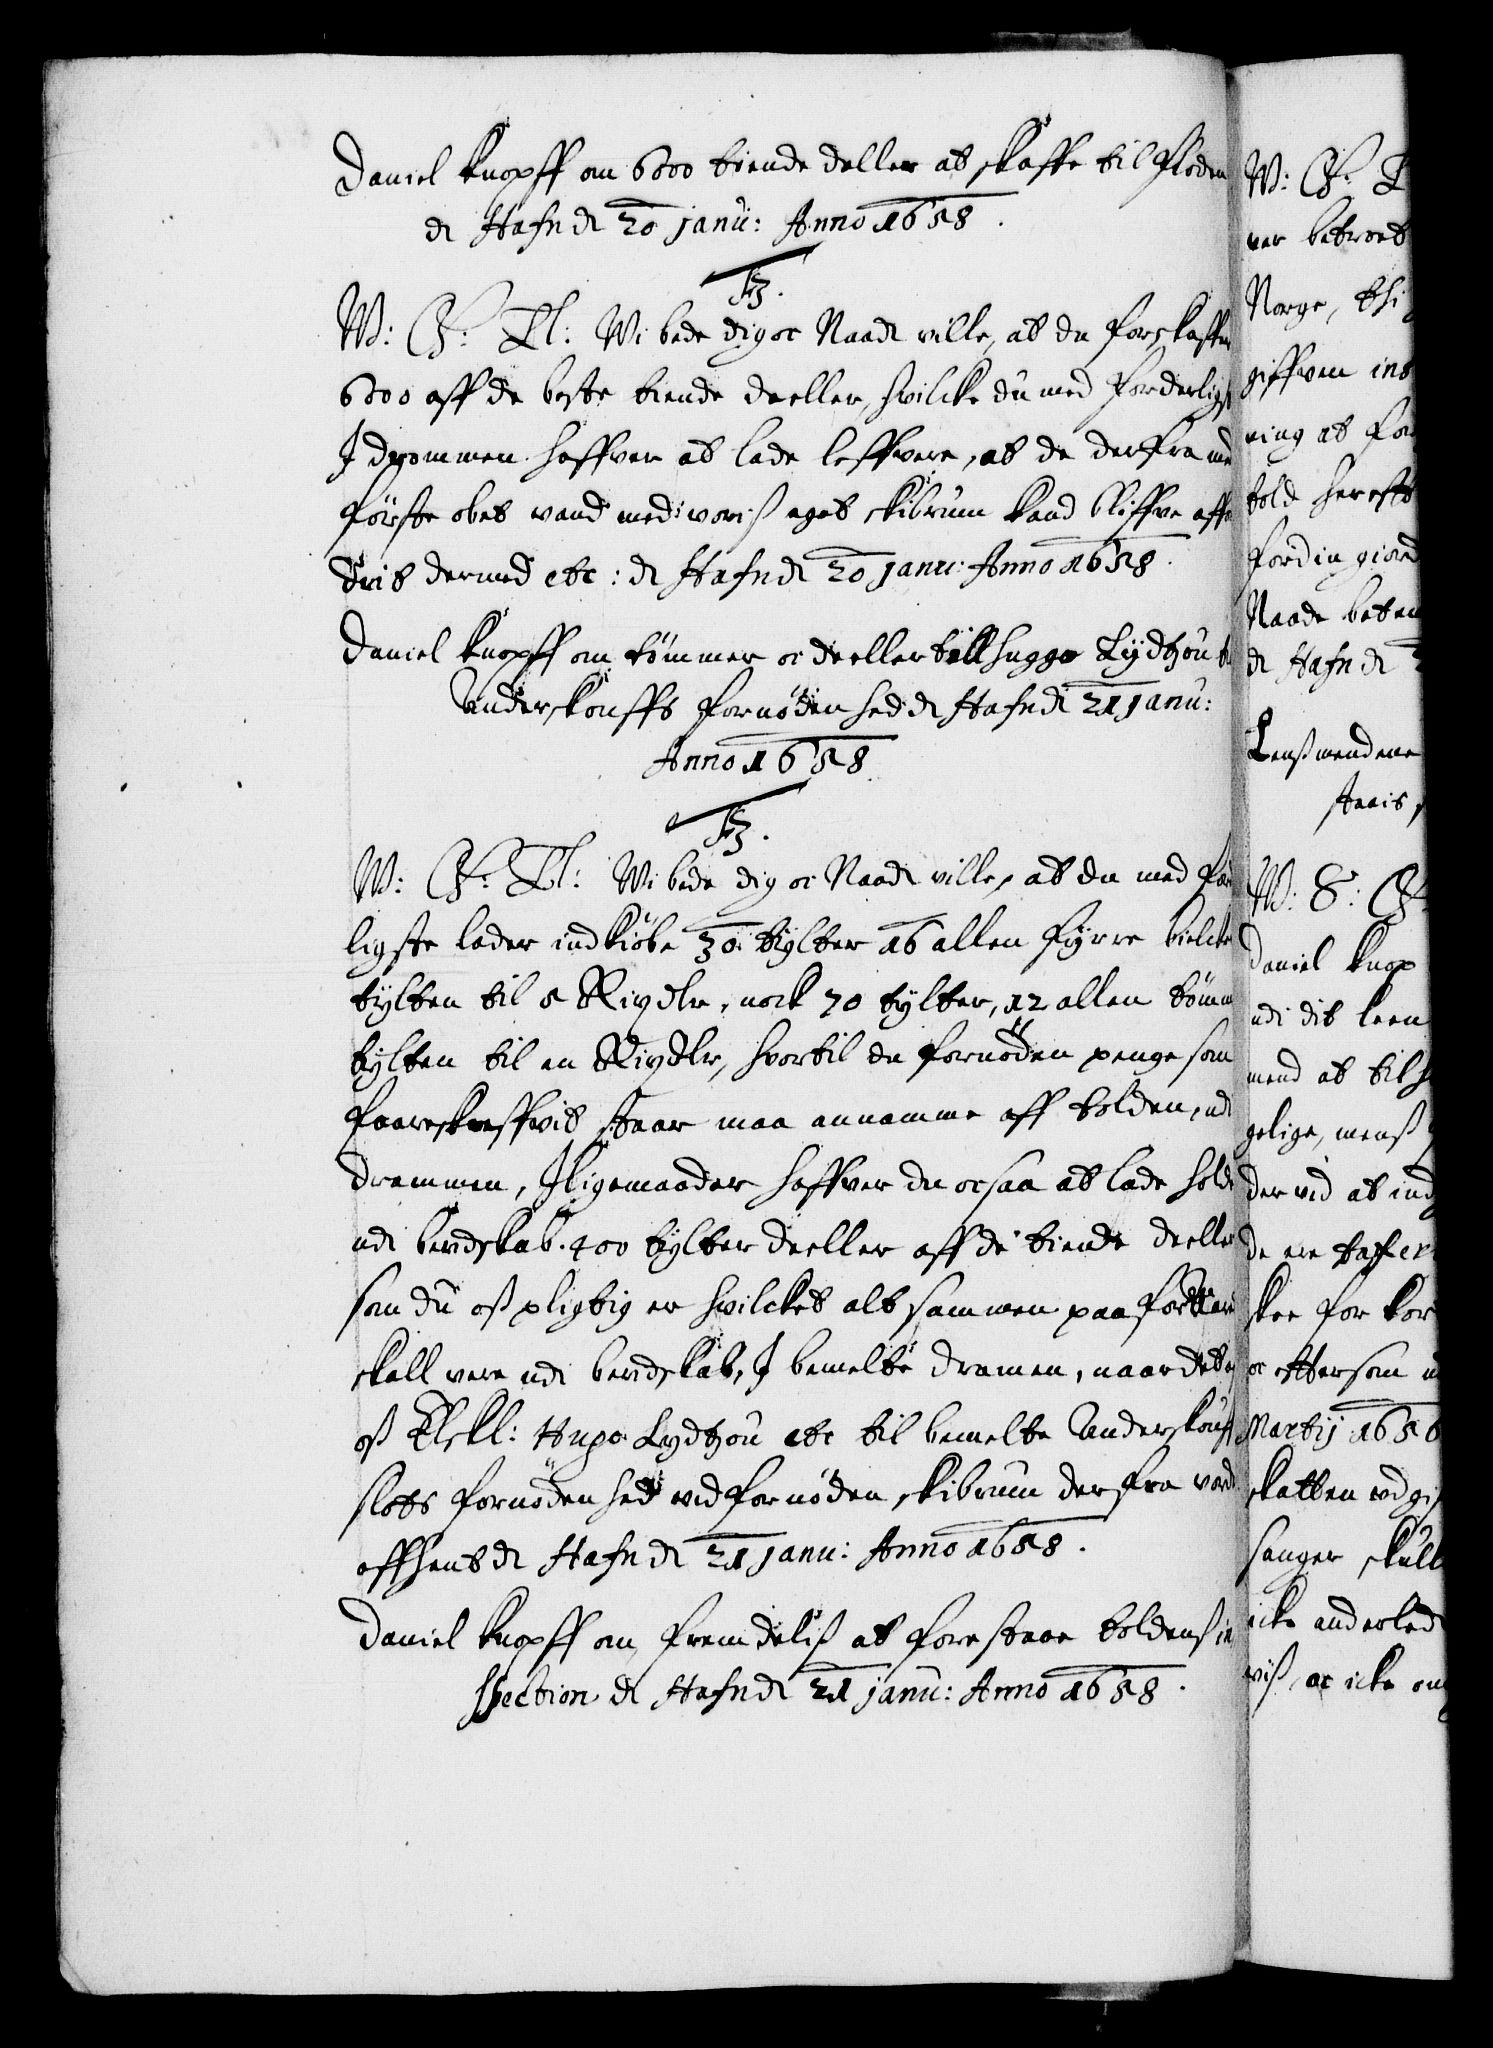 Daniel Knopff om 6000 tiende deller at skaffe til floden
di Hafn di 20 Janu: Anno 1658.
F3.
W: G: Tl: Wi bede dig oc Naadi ville, at du forskaffer
6000 aff de beste tiende deeller, hvilcke du med forderligst
J drommen haffver at lade leffvere, at de derfra med
förste obet vand med voris eget skibrum kand bliffve affo
drit dermed etc: di Hafn di 20 Janu: Anno 1658.
Daniel Knopff om tömmer oc deeller till hugge Lydtzou t
Anderskouffs fornödenhed di Hafn di 21 Janu:
Anno 1658
F3.
W: G: Tl: Wi bede dig oc Naadi ville, at du med for
ligste lader indkiöbe 30 tylter 16 allen fyrre bielcke
tylten til 8 Rixdlr, nock 70 tylter, 12 allen tömm
tylten til en Rixdlr, hvortil du fornöden penge som
faareskreffvit staar maa annamme aff tolden, udi
drammen, J ligemaader haffver du ocsaa at lade holde
udi beredskab 400 tylter deeller aff de tiende deeller
som du oss pligtig er hvilcket alt sammen paa forklar
skall vere udi beredskab, J bemelte dramen, naar det a
oss Elskl: Hugo Lydtzou etc til bemelte Anderskouff
slots fornödenhed ved fornöden skibrum derfra vord
affhent di Hafn di 21 Janu: Anno 1658.
Daniel Knopff om fremdelis at forestaae toldens in
spection di Hafn di 21 Janu: Anno 1658.
W: G: T
ver betroet
Norge, thi
giffven ind
ring at for
told hereft
fordin giord
Naade beten
di Hafn di
Lenssmendene
staais
W: S: G
Daniel Knop
udi dit leen
mend at til
gelige, menss
der ved at ind
de ere taff
skee for kor
oc eftersom
Martij 1656
skatten udgif
sanger skull
icke anderled
viss, oc icke om